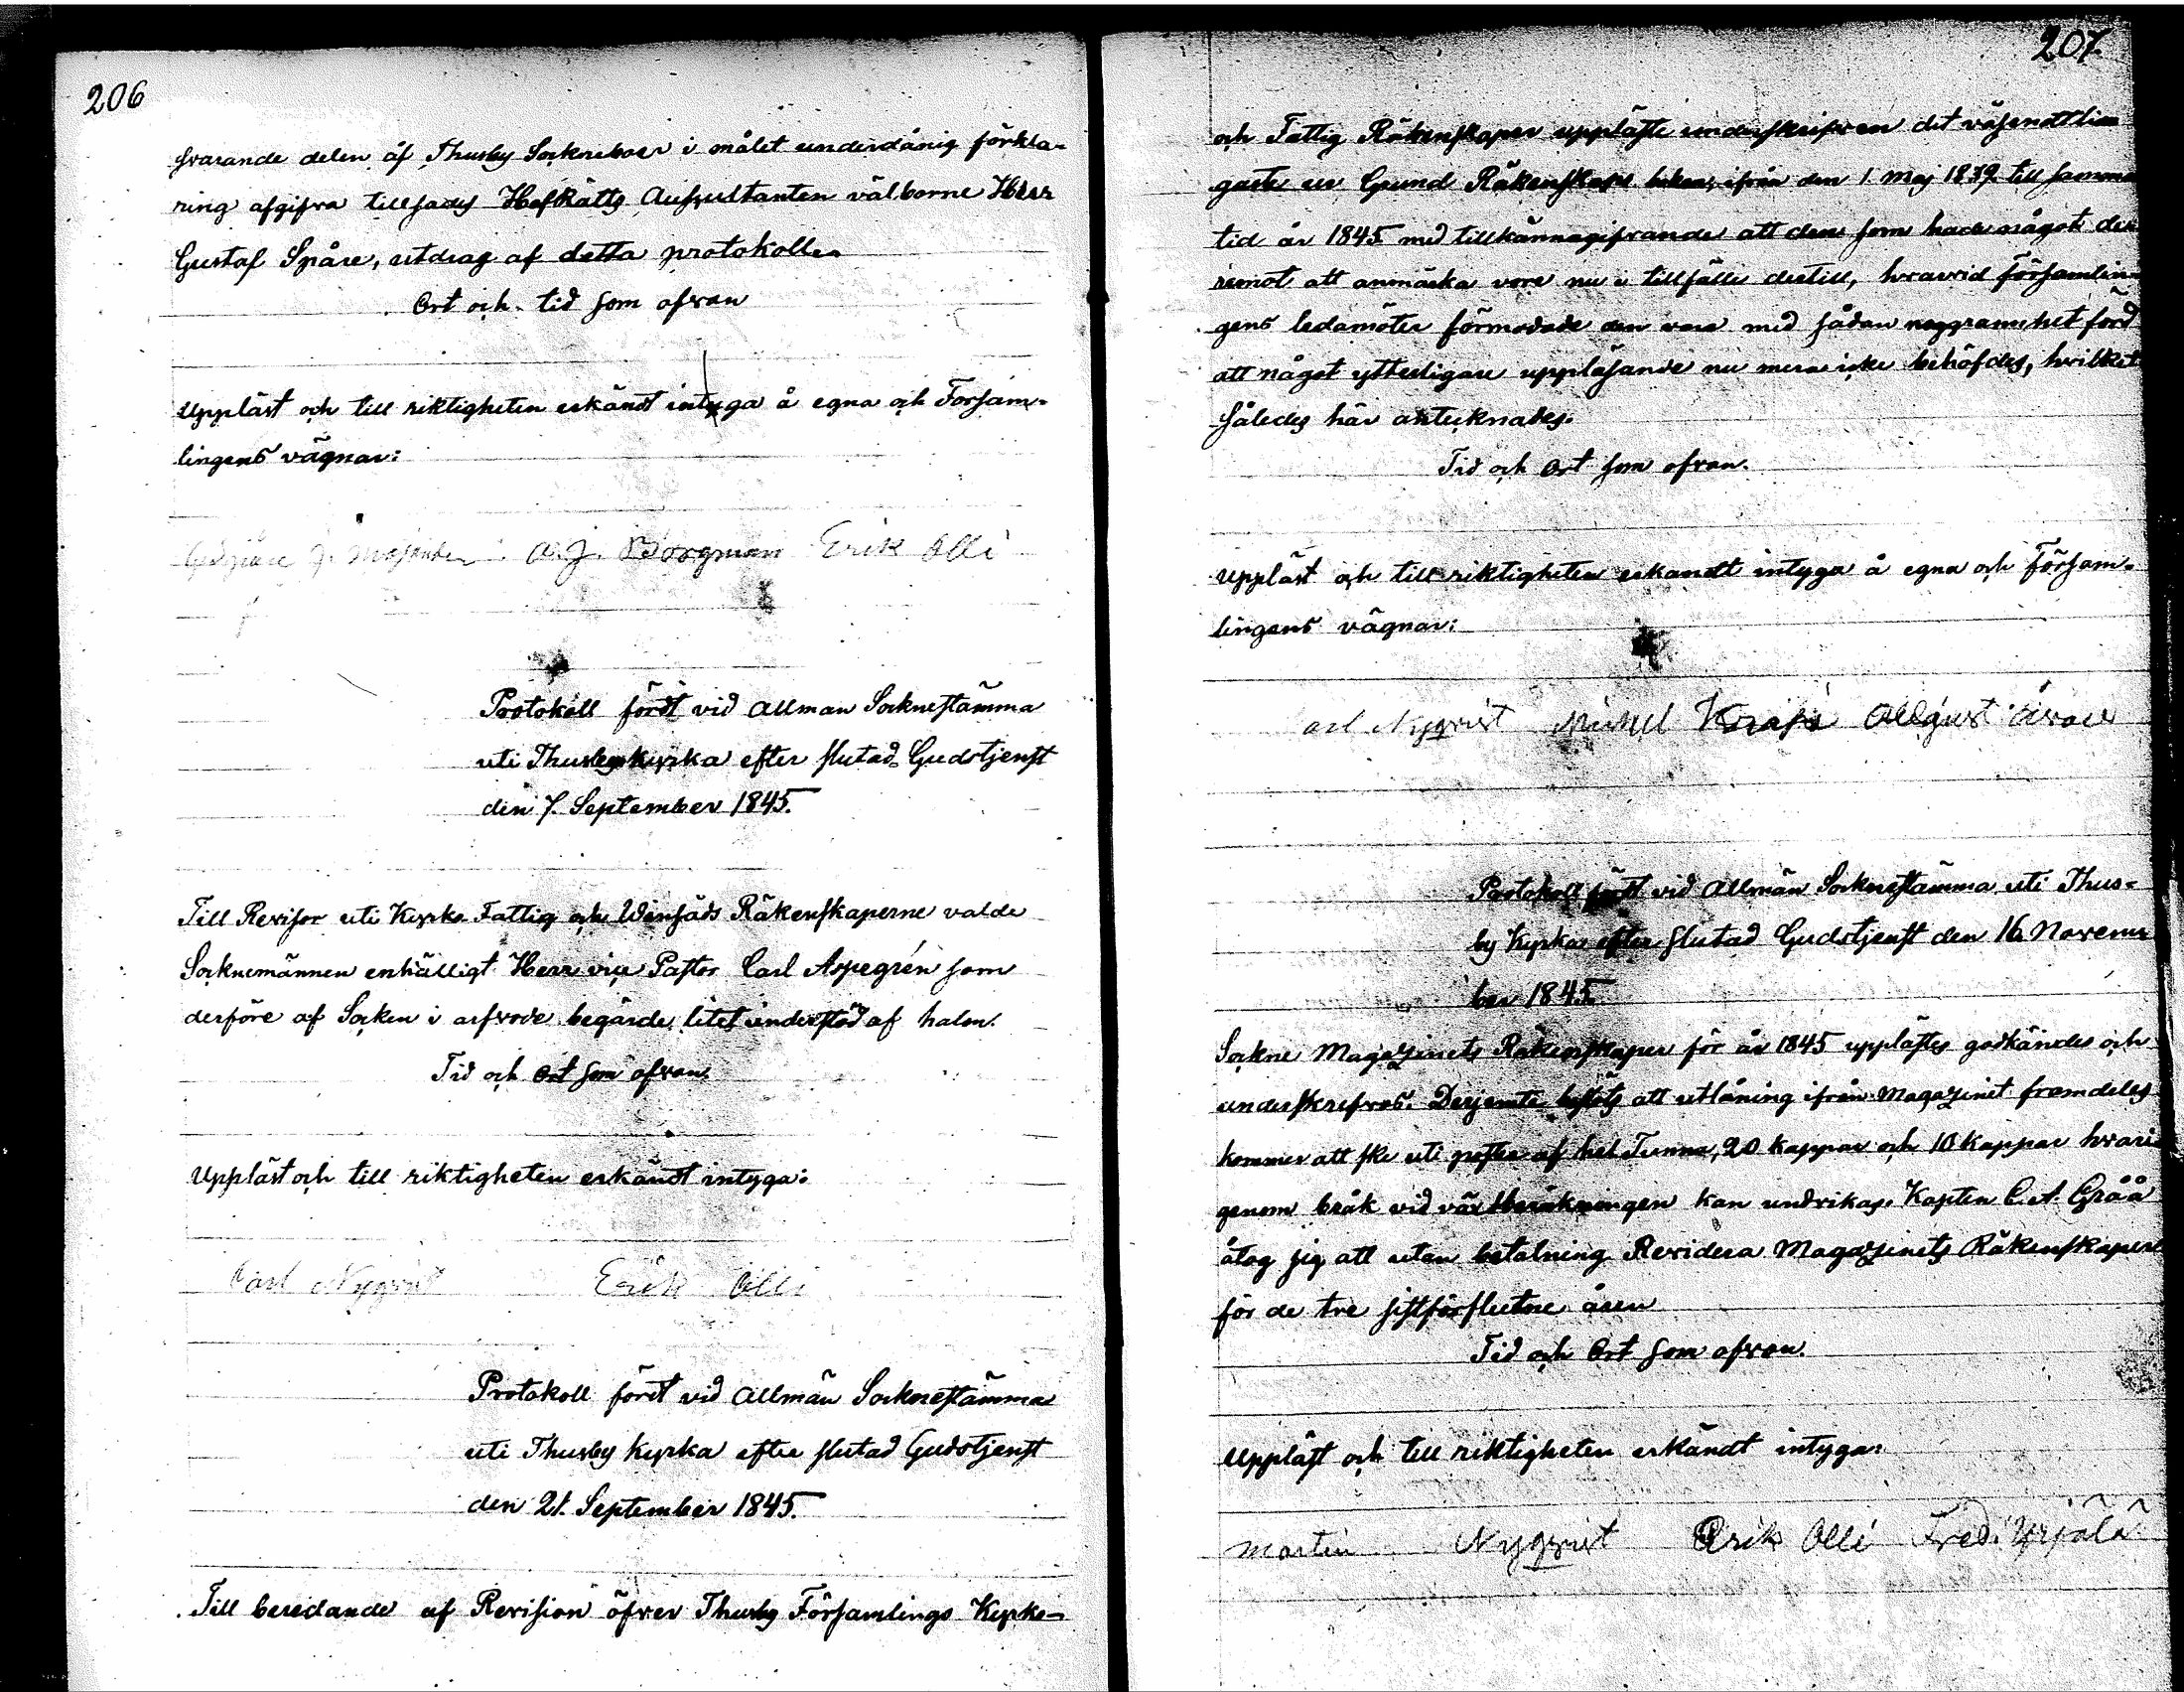 206
svarande delen af Thusby Sockneboer i målet underdånig förkla-
ring afgifva tillsades HofRätts Auscultanten välborne Herr
Gustaf Spåre, utdrag af detta protokoll.
Ort och tid som ofvan
Uppläst och till riktigheten erkändt intyga å egna och Försam-
lingens vägnar:
A. J. Borgman Erik Olli
Protokoll fördt vid Allmän Socknestämma
uti Thusby kyrka efter slutad Gudstjenst
den 7. September 1845.
Till Revisor uti Kyrko Fattig och Winsäds Räkenskaperne valde
Socknemännen enhälligt Herr vice Pastor Carl Aspegrén som
derföre af Socken i arfvode begärde litet understöd af halm.
Tid och Ort som ofvan.
Uppläst och till riktigheten erkändt intyga:
Carl Nyqvist Erik Olli
Protokoll fördt vid Allmän Socknestämma
uti Thusby kyrka efter slutad Gudstjenst
den 21. September 1845.
Till beredande af Revision öfver Thusby Församlings Kyrko-
207
och Fattig Räkenskaper uppläste underskrifven det väsendtlia
gaste ur Grund Räkenskaps boken, ifrån den 1 Maj 1839 till samma
tid år 1845 med tillkännagifvande att den som hade något der
remot att anmärka vore nu i tillfälle dertill, hvarvid Församlin-
gens ledamöter förmodade den vara med sådan noggrannhet förd
att något ytterligare uppläsande nu mera icke behöfdes, hvilket
således här antecknades.
Tid och Ort som ofvan.
Uppläst och till riktigheten erkandt intyga å egna och Försam-
lingens vägnar:
arl Nyqvist Mickel Krapi
Protokoll fördt vid Allmän Socknestämma uti Thus-
by Kyrka efter slutad Gudstjenst den 16 Novem
ber 1845
Sockne Magazinets Räkenskaper för år 1845 upplästes godkändes och
underskrefvos. Derjemte beslöts att utlåning ifrån Magazinet framdeles
kommer att ske uti poster af hel Tunna, 20 kappar och 10 kappar hvari
genom bråk vid uträkningen kan undvikas. Kapten C. A. Gråå
åtog sig att utan betalning Revidera Magazinets Räkenskaper
för de tre sistförflutne åren
Tid och Ort som ofvan.
Uppläst och till riktigheten erkändt intyga:
Martin Nyqvist Erik Olli Fred. Yrjälä